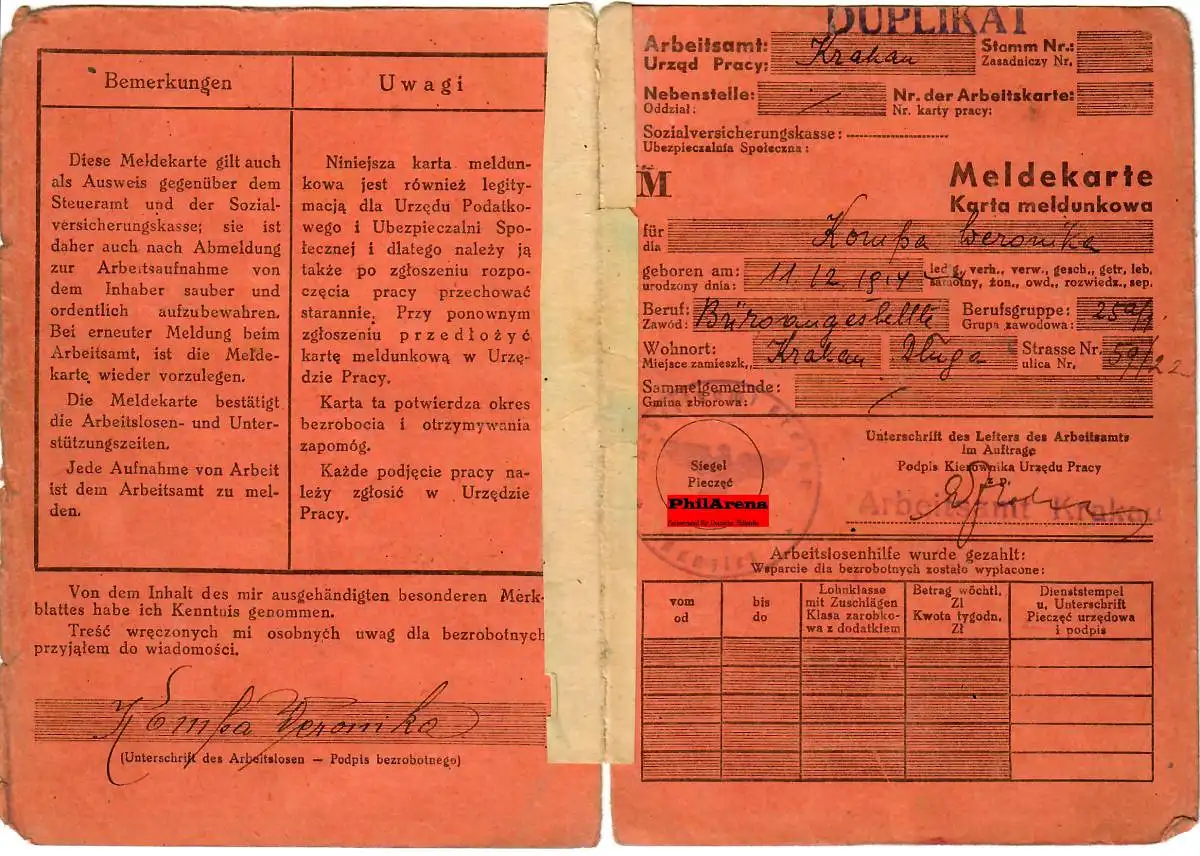 Bemerkungen
Uwagi
Diese Meldekarte gilt auch
als Ausweis gegenüber dem
Steueramt und der Sozial-
versicherungskasse; sie ist
daher auch nach Abmeldung
zur Arbeitsaufnahme von
dem Inhaber sauber und
ordentlich aufzubewahren.
Bei erneuter Meldung beim
Arbeitsamt, ist die Melde-
kartę wieder vorzulegen.
Die Meldekarte bestätigt
die Arbeitslosen- und Unter-
stützungszeiten.
Jede Aufnahme von Arbeit
ist dem Arbeitsamt zu mel-
den.
Niniejsza karta meldun-
kowa jest również legity-
macją dla Urzędu Podatko-
wego i Ubezpieczalni Spo-
łecznej i dlatego należy ją
także po zgłoszeniu rozpo-
częcia pracy przechować
starannie. Przy ponownym
zgłoszeniu przedłożyć
kartę meldunkową w Urzę-
dzie Pracy.
Karta ta potwierdza okres
bezrobocia i otrzymywania
zapomóg.
Każde podjęcie pracy na-
leży zgłosić w Urzędzie
Pracy.
Von dem Inhalt des mir ausgehändigten besonderen Merk-
blattes habe ich Kenntuis genommen.
Treść wręczonych mi osobnych uwag dla bezrobotnych
przyjąłem do wiadomości.
Veronika
(Unterschrift des Arbeitslosen — Podpis bezrobotnego)
DUPLIKAT
Arbeitsamt: Krakau Stamm Nr.:
Urząd Pracy: Zasadniczy Nr.
Nebenstelle: / Nr. der Arbeitskarte:
Oddział: Nr. karty pracy:
Sozialversicherungskasse:
Ubezpieczalnia Społeczna:
M
Meldekarte
Karta meldunkowa
für
dla
Weronika
geboren am: 11.12.1914 led'g, verh., verw., gesch., getr, leb,
urodzony dnia: samotny, żon., owd., rozwiedz., sep.
Beruf: Büroangestellte Berufsgruppe: 25a/
Zawód: Grupa zawodowa:
Wohnort: Krakau Długa Strasse Nr. 59/22
Miejsce zamieszk., ulica Nr.
Sammelgemeinde: /
Gmina zbiorowa:
Siegel
Pieczęć
PhilArena
Unterschrift des Leiters des Arbeitsamts
Im Auftrage
Podpis Kierownika Urzędu Pracy
z.p.
Arbeitsamt Krakau
Arbeitslosenhilfe wurde gezahlt:
Wsparcie dla bezrobotnych zostało wypłacone:
vom
od
bis
do
Lohnklasse
mit Zuschlägen
Klasa zarobko-
wa z dodatkiem
Betrag wöchtl.
Zl
Kwota tygodn.
Zł
Dienststempel
u, Unterschrift
Pieczęć urzędowa
i podpis